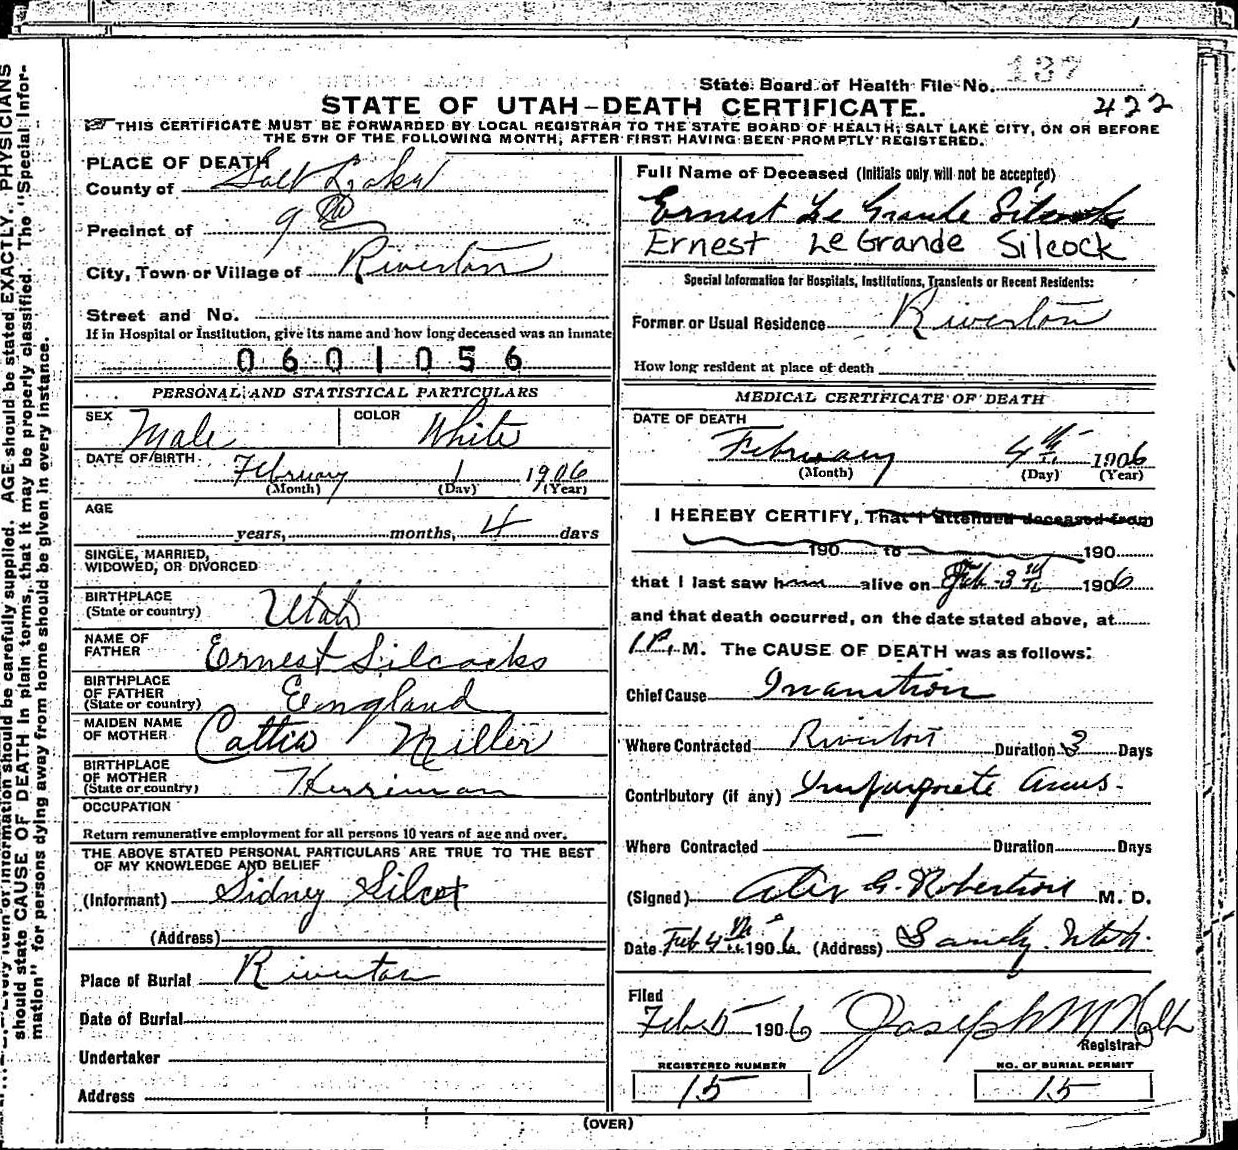 State Board of Health File No. 137
STATE OF UTAH-DEATH CERTIFICATE.
422
THIS CERTIFICATE MUST BE FORWARDED BY LOCAL REGISTRAR TO THE STATE BOARD OF HEALTH, SALT LAKE CITY, ON OR BEFORE
THE 5TH OF THE FOLLOWING MONTH, AFTER FIRST HAVING BEEN PROMPTLY REGISTERED.
PLACE OF DEATH
County of Salt Lake
Precinct of 9th
City, Town or Village of Riverton
Street and No.
If in Hospital or Institution, give its name and how long deceased was an inmate
0601056
PERSONAL AND STATISTICAL PARTICULARS
SEX Male COLOR White
DATE OF BIRTH February 1 1906
(Month) (Day) (Year)
AGE years, months, 4 days
SINGLE, MARRIED,
WIDOWED, OR DIVORCED
BIRTHPLACE
(State or country) Utah
NAME OF
FATHER Ernest Silcocks
BIRTHPLACE
OF FATHER
(State or country) England
MAIDEN NAME
OF MOTHER Miller
BIRTHPLACE
OF MOTHER
(State or country) Herriman
OCCUPATION
Return remunerative employment for all persons 10 years of age and over.
THE ABOVE STATED PERSONAL PARTICULARS ARE TRUE TO THE BEST
OF MY KNOWLEDGE AND BELIEF
(Informant) Sidney Silcox
(Address)
Place of Burial Riverton
Date of Burial
Undertaker
Address
Full Name of Deceased (Initials only will not be accepted)
Ernest Le Grande Silcock
Ernest LeGrande Silcock
Special Information for Hospitals, Institutions, Transients or Recent Residents:
Former or Usual Residence Riverton
How long resident at place of death
MEDICAL CERTIFICATE OF DEATH
DATE OF DEATH
February 4th 1906
(Month) (Day) (Year)
I HEREBY CERTIFY, That I attended deceased from
190 to 190
that I last saw h alive on Feb 3rd 1906
and that death occurred, on the date stated above, at
1 P. M. The CAUSE OF DEATH was as follows:
Chief Cause Inanition
Where Contracted Riverton Duration 3 Days
Contributory (if any) Imperforate Anus
Where Contracted — Duration Days
(Signed) G. Robertson M. D.
Date Feb 4th 1906. (Address) Sandy Utah.
Filed
Feb 5 1906 Joseph M
Registrar
REGISTERED NUMBER
15
NO. OF BURIAL PERMIT
15
(OVER)
should state CAUSE OF DEATH in plain terms, that it may be properly classified. The "Special Infor-
mation" for persons dying away from home should be given in every instance.
Every item of information should be carefully supplied. AGE should be stated EXACTLY. PHYSICIANS